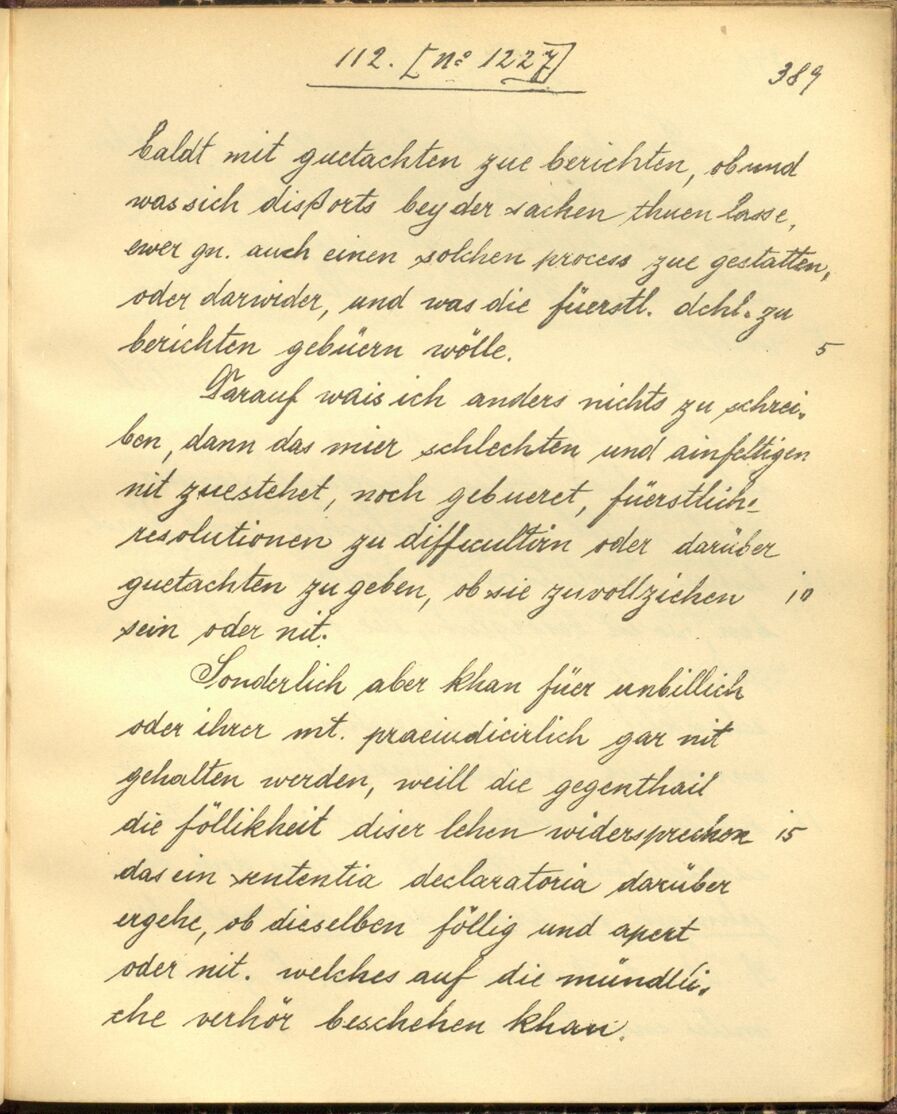 112. [No 1227]
389
baldt mit guetachten zue berichten, ob und
was sich dißorts bey der sachen thuen lasse,
ewer gn. auch einen solchen process zue gestatten,
oder darwider, und was die füerstl. dchl. zu
berichten gebüern wölle. 5
Darauf wais ich anders nichts zu schrei-
ben, dann das mier schlechten und ainfeltigen
nit zuestehet, noch gebueret, füerstlich-
resolutionen zu difficultirn oder darüber
guetachten zu geben, ob sie zuvollziehen 10
sein oder nit.
Sonderlich aber khan füer unbillich
oder ihrer mt. praeiudicirlich gar nit
gehalten werden, weill die gegenthail
die föllikheit diser lehen widersprechen 15
das ein sententia declaratoria darüber
ergehe, ob dieselben föllig und apert
oder nit. welches auf die mündli-
che verhör beschehen khan.